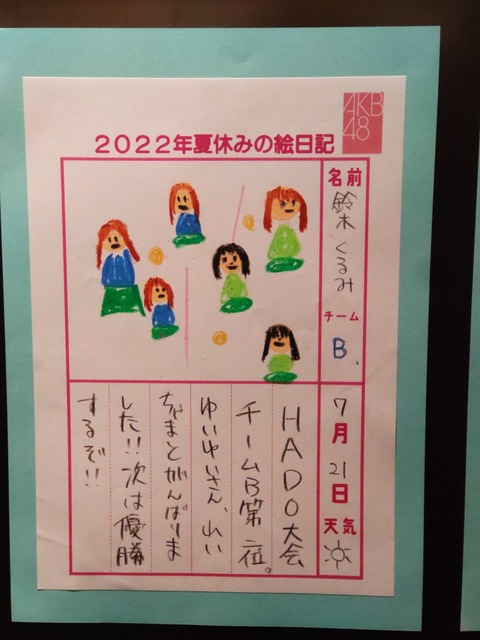 AKB
48
2022年夏休みの絵日記
名前
鈴木くるみ
チーム
B.
7月21日
天気
HADO大会
チームB第二位。
ゆいゆいさん、れい
ちゃまとがんばりま
した!!次は優勝
するぞ!!